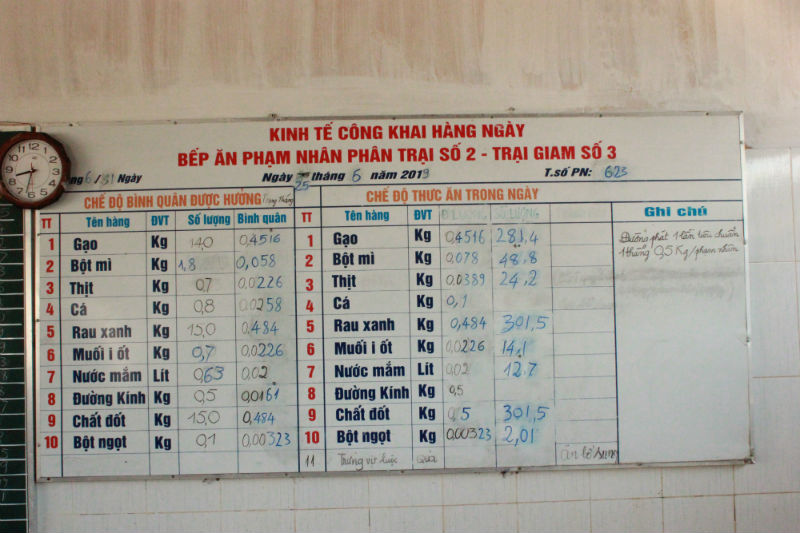 KINH TẾ CÔNG KHAI HÀNG NGÀY
BẾP ĂN PHẠM NHÂN PHÂN TRẠI SỐ 2 - TRẠI GIAM SỐ 3
6/31 Ngày Ngày 25 tháng 6 năm 2019 T.số PN: 623
CHẾ ĐỘ BÌNH QUÂN ĐƯỢC HƯỞNG CHẾ ĐỘ THỨC ĂN TRONG NGÀY
TT Tên hàng ĐVT Số lượng Bình quân TT Tên hàng ĐVT SỐ LƯỢNG Ghi chú
1 Gạo Kg 14.0 0,4516 1 Gạo Kg 0,4516 281,4 Đường phát 1 lần tiêu chuẩn
2 Bột mì Kg 1,8 0,058 2 Bột mì Kg 0,078 48.8 1 tháng 0,5 Kg/phạm nhân
3 Thịt Kg 0,7 0,0226 3 Thịt Kg 0,0389 24,2
4 Cá Kg 0,8 0,0258 4 Cá Kg 0,1
5 Rau xanh Kg 15,0 0,484 5 Rau xanh Kg 0,484 301,5
6 Muối i ốt Kg 0,7 0,0226 6 Muối i ốt Kg 0,0226 14,1
7 Nước mắm Lít 0,63 0,02 7 Nước mắm Lít 0,02 12.7
8 Đường Kính Kg 0,5 0,0161 8 Đường Kính Kg 0,5
9 Chất đốt Kg 15,0 0,484 9 Chất đốt Kg 0,5 301,5
10 Bột ngọt Kg 0,1 0,00323 10 Bột ngọt Kg 0,00323 2,01
11 Trứng vịt luộc quả ăn bổ sung